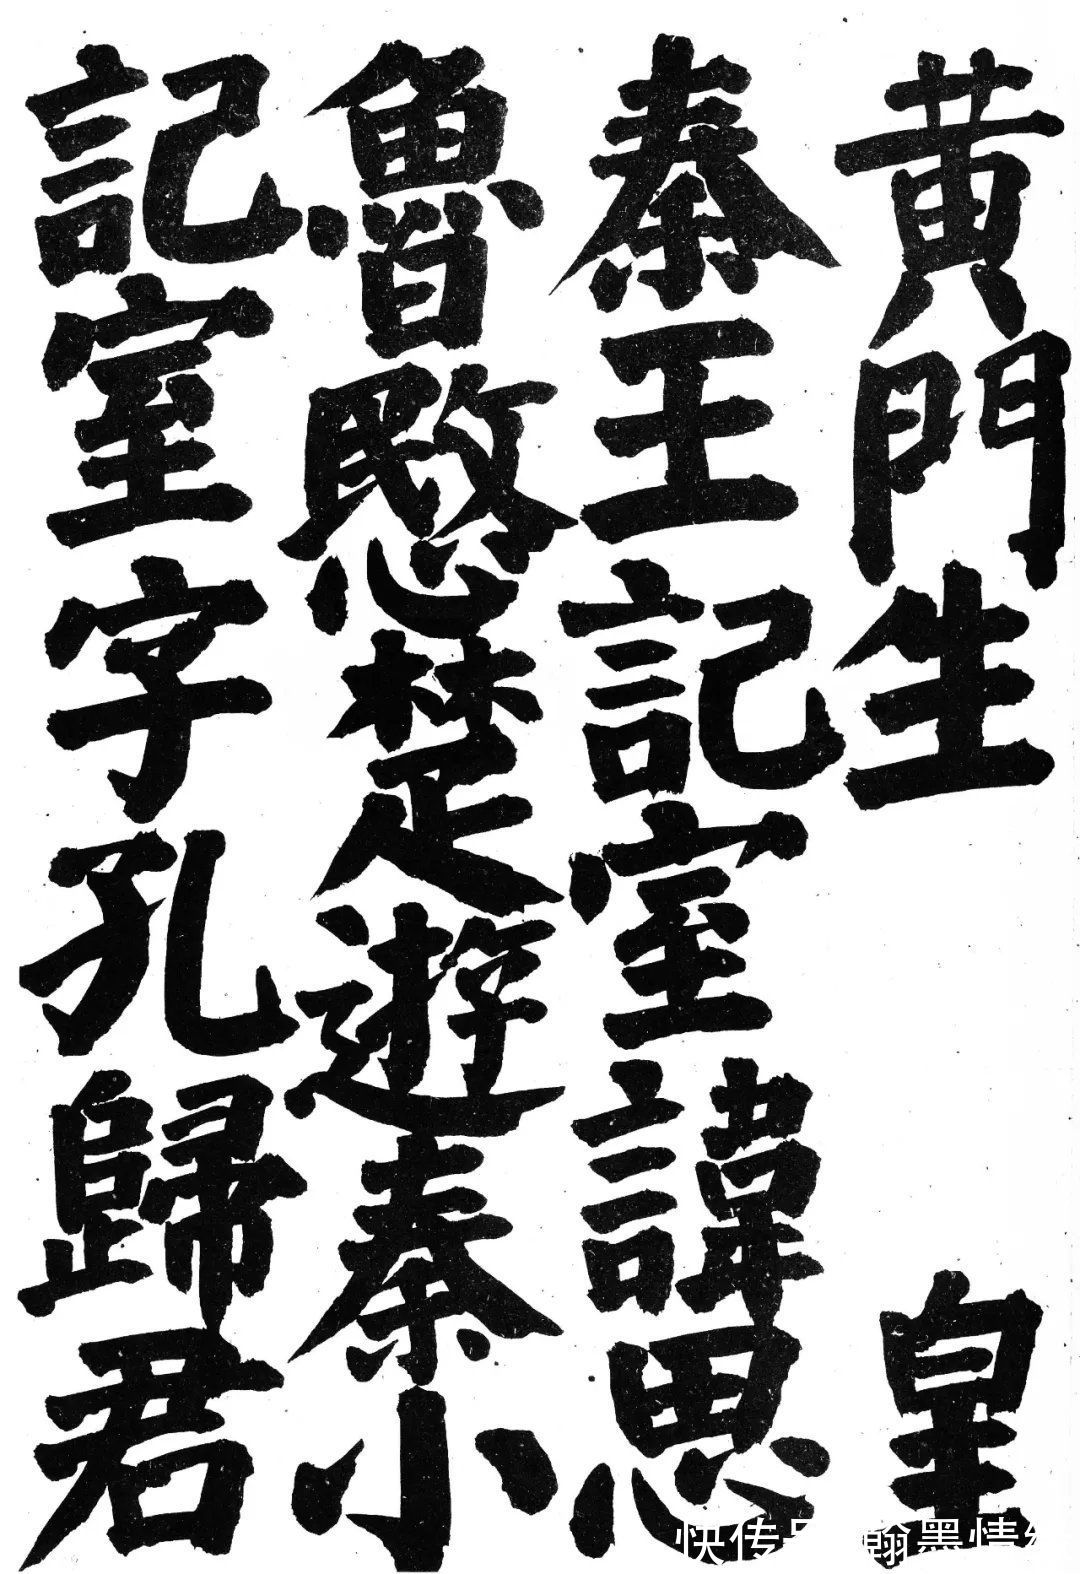 黄門生 皇
秦王記室諱思
魯愍楚遊秦小
記室字孔歸君
快传号 翰墨情